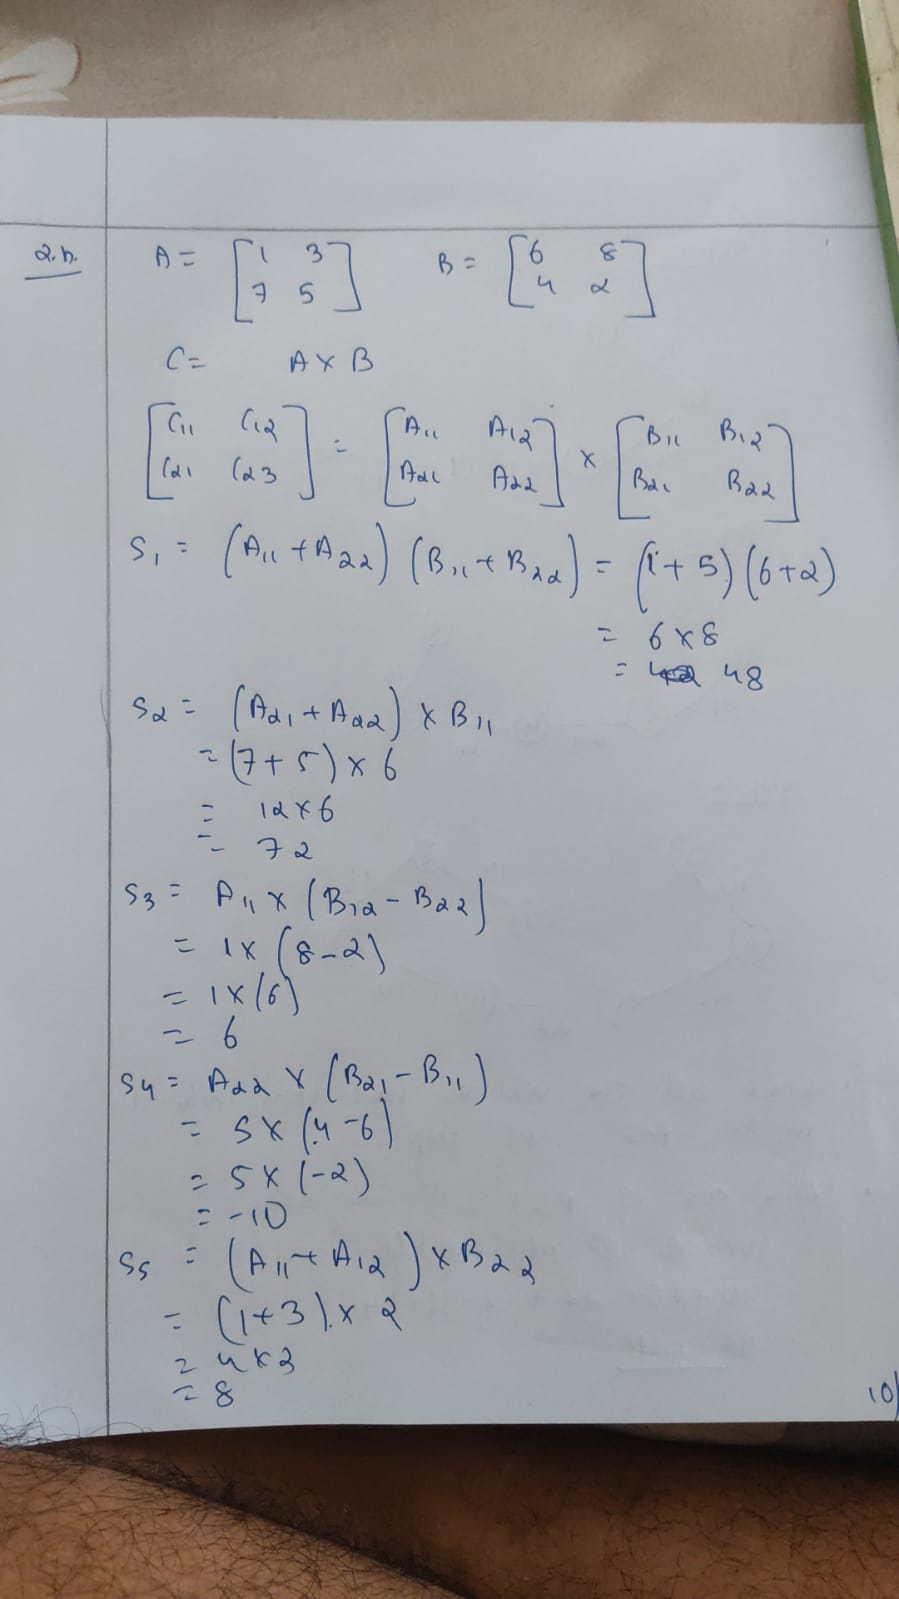 2.h. A = [1 3 B = [6 8
7 5] 4 2]
C = A × B
[C11 C12 = [A11 A12 × [B11 B12
C21 C23] A21 A22] B21 B22]
S1 = (A11 + A22) (B11 + B22) = (1 + 5) (6 + 2)
= 6 × 8
= 48
S2 = (A21 + A22) × B11
= (7 + 5) × 6
= 12 × 6
= 72
S3 = A11 × (B12 - B22)
= 1 × (8 - 2)
= 1 × (6)
= 6
S4 = A22 × (B21 - B11)
= 5 × (4 - 6)
= 5 × (-2)
= -10
S5 = (A11 + A12) × B22
= (1 + 3) × 2
= 4 × 2
= 8
10/